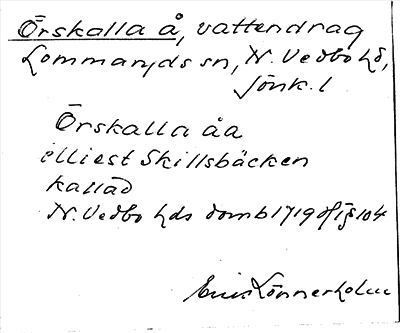 Örskalla å, vattendrag
Lommaryds sn, N. Vedbo hd,
Jönk. l
Örskalla åa
elliest Skillsbäcken
kallad
N. Vedbo hds domb 1719 8/7 § 104
Eric Lönnerholm